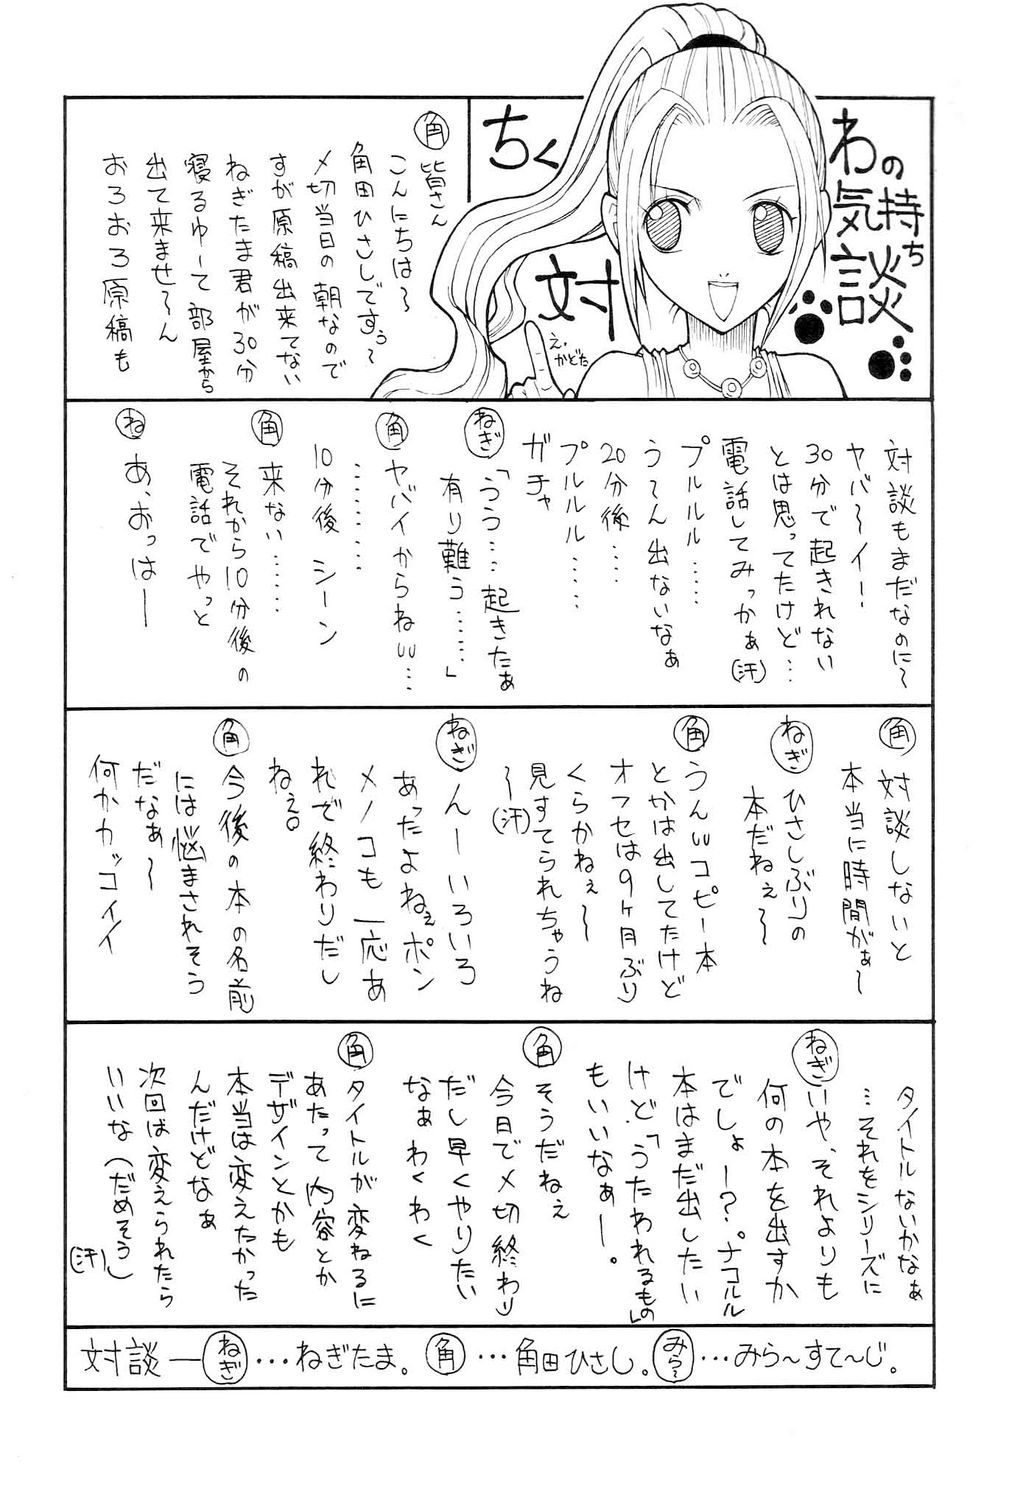 ちくわの気持ち
対談
え、かどた
角
皆さん
こんにちは〜
角田ひさしですぅ〜
〆切当日の朝なので
すが原稿出来てない
ねぎたま君が30分
寝るゆーて部屋から
出て来ませ〜ん
おろおろ原稿も
対談もまだなのに〜
ヤバ〜イ!
30分で起きれない
とは思ってたけど…
電話してみっかぁ(汗)
プルルル……
う〜ん出ないなぁ
20分後…
プルルル……
ガチャ
ねぎ「うう…起きたぁ
有り難う……」
角 ヤバイからねw…
………
10分後 シーン
角 来ない……
それから10分後の
電話でやっと
ね あ、おっはー
角 対談しないと
本当に時間がぁ〜
ねぎ ひさしぶりの
本だねぇ〜
角 うんwコピー本
とかは出してたけど
オフセは9ヶ月ぶり
くらかねぇ〜
見すてられちゃうね
〜(汗)
ねぎ んーいろいろ
あったよねぇポン
メノコも一応あ
れで終わりだし
ねぇ。
角 今後の本の名前
には悩まされそう
だなぁ〜
何かカッコイイ
タイトルないかなぁ
…それをシリーズに
ねぎ いや、それよりも
何の本を出すか
でしょー?ナコルル
本はまだ出したい
けど「うたわれるもの」
もいいなぁー。
角 そうだねぇ
今日で〆切終わり
だし早くやりたい
なぁわくわく
角 タイトルが変わるに
あたって内容とか
デザインとかも
本当は変えたかった
んだけどなぁ
次回は変えられたら
いいな(だめそう)
(汗)
対談―ねぎ…ねぎたま。角…角田ひさし。みら〜…みら〜すて〜じ。